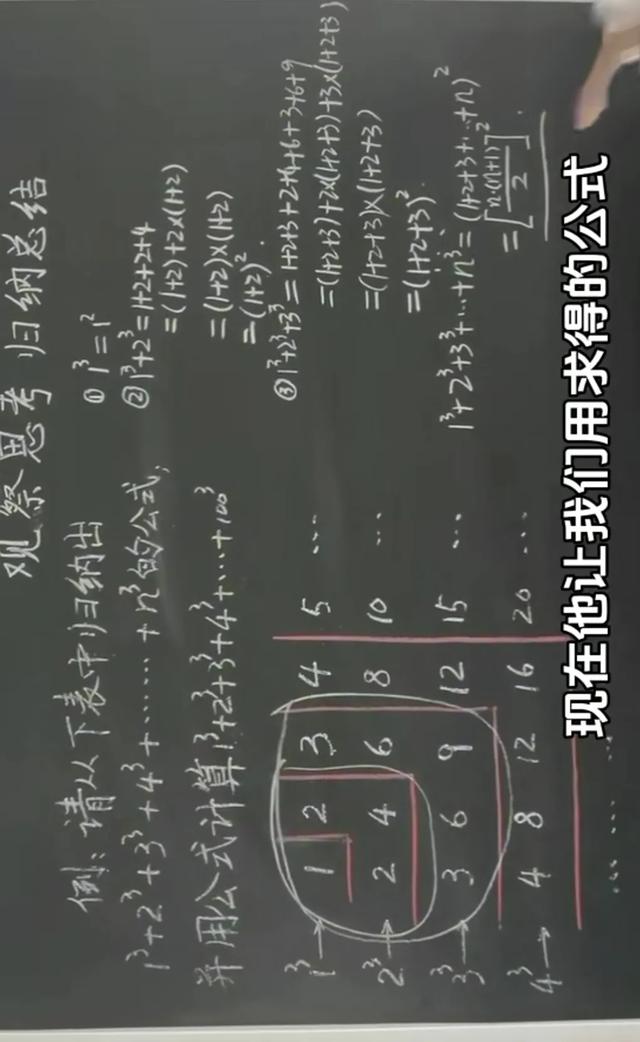 观察思考 归纳总结
例:请从以下表中归纳出
1³+2³+3³+4³+……+n³的公式,
并用公式计算1³+2³+3³+4³+…+100³
1³→ 1 2 3 4 5 …
2³→ 2 4 6 8 10 …
3³→ 3 6 9 12 15 …
4³→ 4 8 12 16 20 …
…… …
① 1³=1²
② 1³+2³=1+2+2+4
=(1+2)+2×(1+2)
=(1+2)×(1+2)
=(1+2)².
③ 1³+2³+3³=1+2+3+2+4+6+3+6+9
=(1+2+3)+2×(1+2+3)+3×(1+2+3)
=(1+2+3)×(1+2+3)
=(1+2+3)².
1³+2³+3³+…+n³=(1+2+3+…+n)²
=[n·(n+1)/2]².
现在他让我们用求得的公式